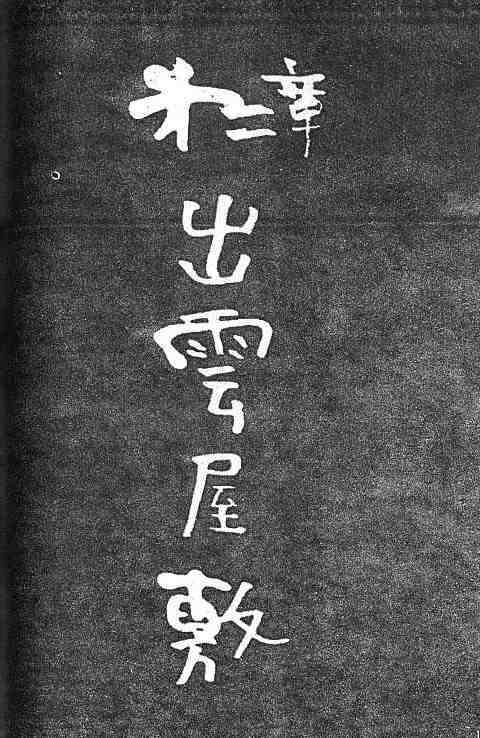 第二章
出雲屋敷